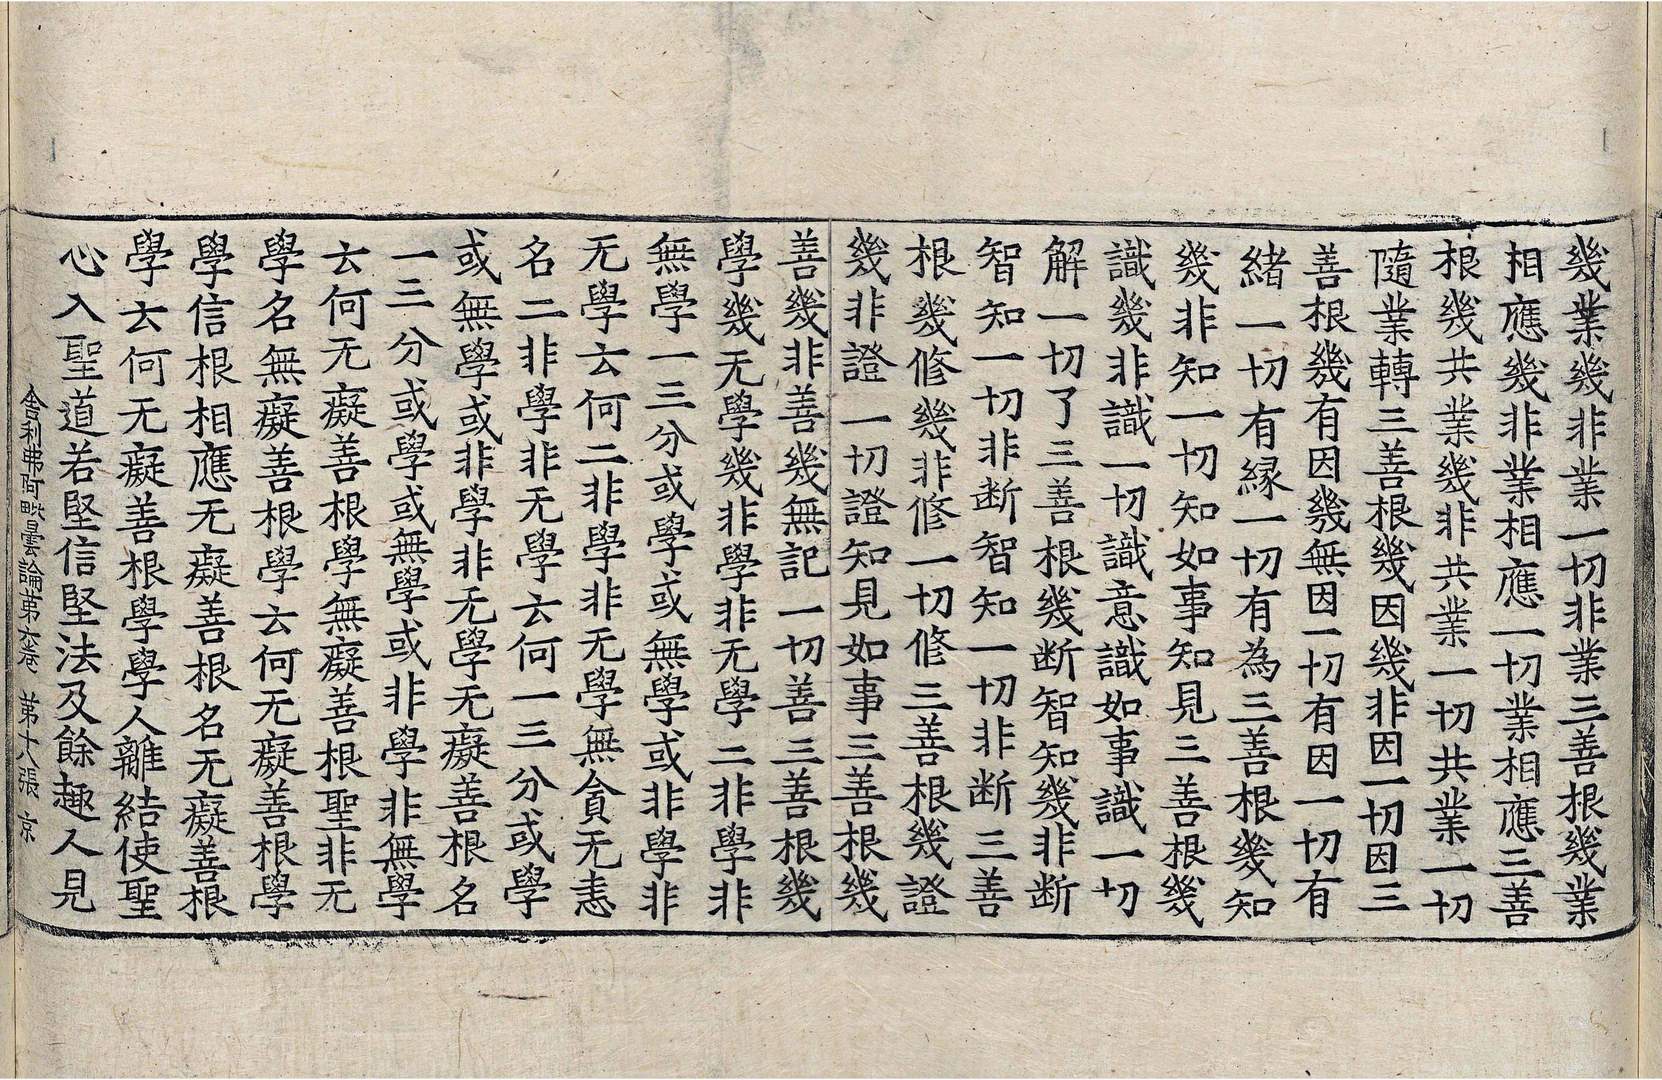 幾業幾非業一切非業三善根幾業
相應幾非業相應一切業相應三善
根幾共業幾非共業一切共業一切
隨業轉三善根幾因幾非因一切因三
善根幾有因幾無因一切有因一切有
緒一切有縁一切有為三善根幾知
幾非知一切知如事知見三善根幾
識幾非識一切識意識如事識一切
解一切了三善根幾断智知幾非断
智知一切非断智知一切非断三善
根幾修幾非修一切修三善根幾證
幾非證一切證知見如事三善根幾
善幾非善幾無記一切善三善根幾
學幾无學幾非學非无學二非學非
無學一三分或學或無學或非學非
无學云何二非學非无學無貪无恚
名二非學非无學云何一三分或學
或無學或非學非无學无癡善根名
一三分或學或無學或非學非無學
云何无癡善根學無癡善根聖非无
學名無癡善根學云何无癡善根學
學信根相應无癡善根名无癡善根
學云何无癡善根學學人離結使聖
心入聖道若堅信堅法及餘趣人見
舍利弗阿毗曇論第六卷 第十八張 京